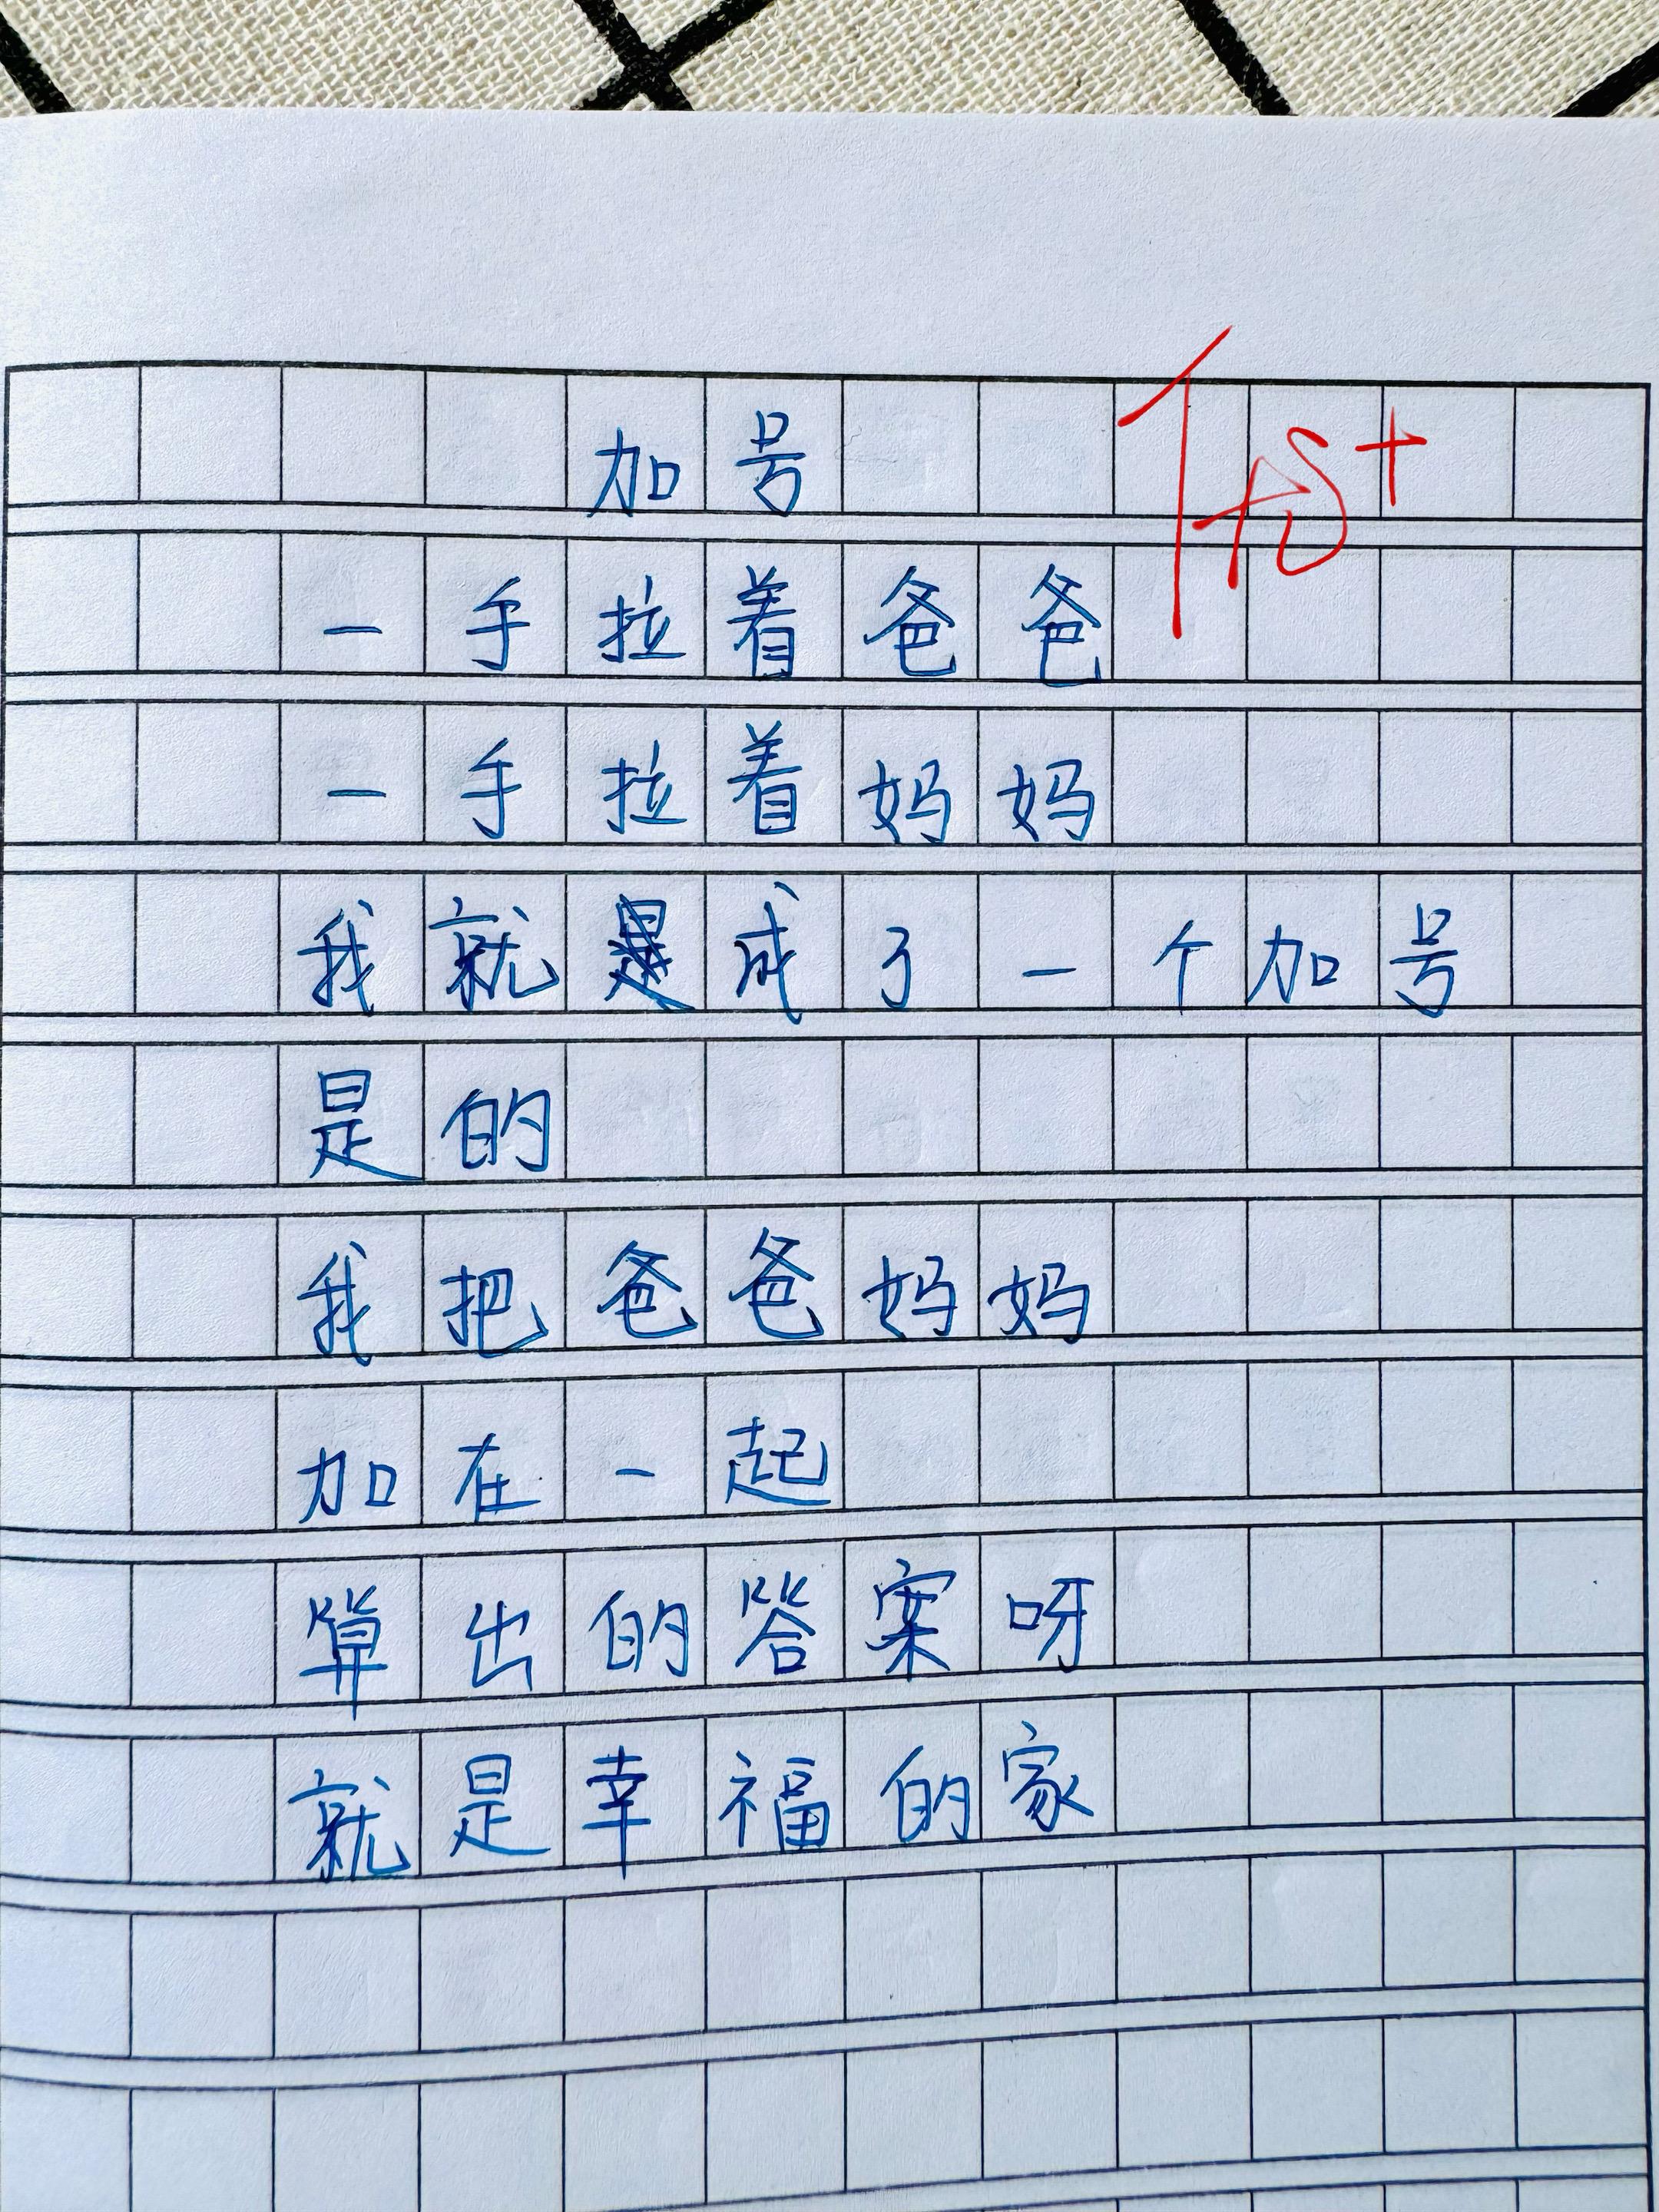 加号
一手拉着爸爸
一手拉着妈妈
我就成了一个加号
是的
我把爸爸妈妈
加在一起
算出的答案呀
就是幸福的家